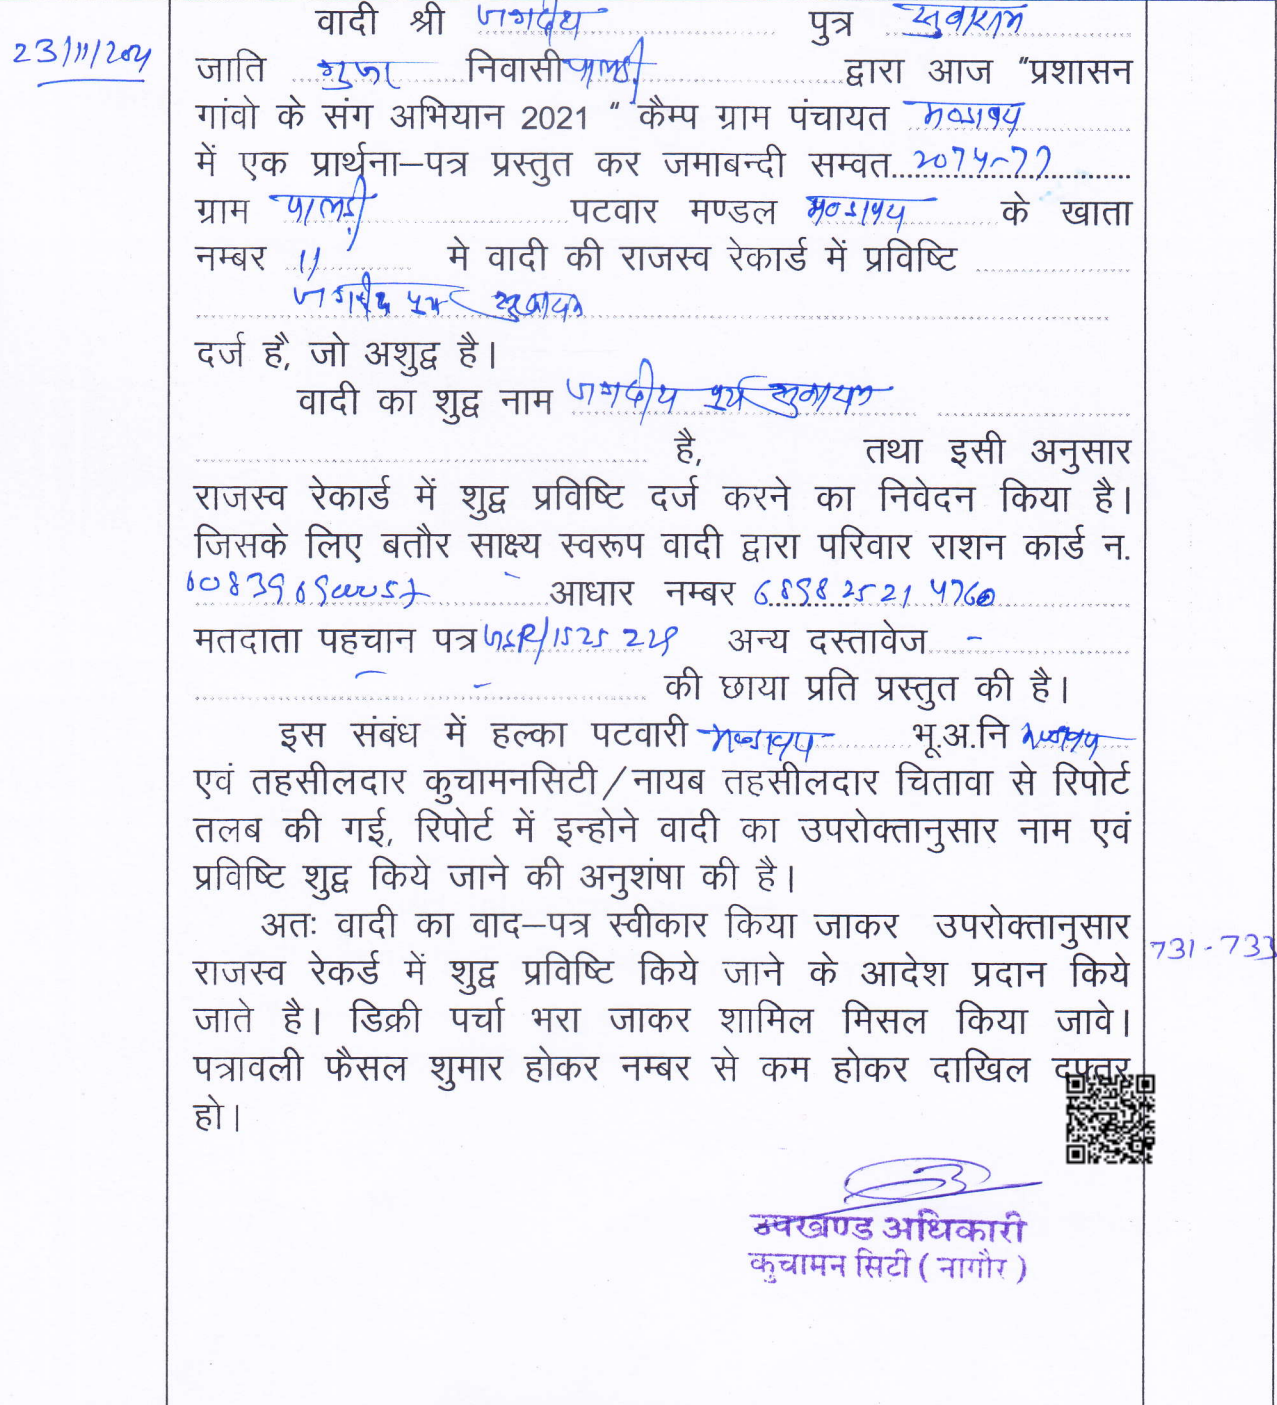 वादी श्री जगदीश पुत्र सुवाराम
23/11/2021
जाति गुर्जर निवासी पालड़ी द्वारा आज "प्रशासन
गांवो के संग अभियान 2021 " कैम्प ग्राम पंचायत
में एक प्रार्थना–पत्र प्रस्तुत कर जमाबन्दी सम्वत 2074-77
ग्राम पालड़ी पटवार मण्डल के खाता
नम्बर 11 मे वादी की राजस्व रेकार्ड में प्रविष्टि
जगदीश पुत्र
दर्ज है, जो अशुद्व है।
वादी का शुद्व नाम जगदीश पुत्र
है, तथा इसी अनुसार
राजस्व रेकार्ड में शुद्व प्रविष्टि दर्ज करने का निवेदन किया है।
जिसके लिए बतौर साक्ष्य स्वरूप वादी द्वारा परिवार राशन कार्ड न.
आधार नम्बर 6898 2521 4760
मतदाता पहचान पत्र अन्य दस्तावेज -
- - की छाया प्रति प्रस्तुत की है।
इस संबंध में हल्का पटवारी भू.अ.नि
एवं तहसीलदार कुचामनसिटी/नायब तहसीलदार चितावा से रिपोर्ट
तलब की गई, रिपोर्ट में इन्होने वादी का उपरोक्तानुसार नाम एवं
प्रविष्टि शुद्व किये जाने की अनुशंषा की है।
अतः वादी का वाद–पत्र स्वीकार किया जाकर उपरोक्तानुसार
731-733
राजस्व रेकर्ड में शुद्व प्रविष्टि किये जाने के आदेश प्रदान किये
जाते है। डिक्री पर्चा भरा जाकर शामिल मिसल किया जावे।
पत्रावली फैसल शुमार होकर नम्बर से कम होकर दाखिल दफ्तर
हो।
उपखण्ड अधिकारी
कुचामन सिटी ( नागौर )